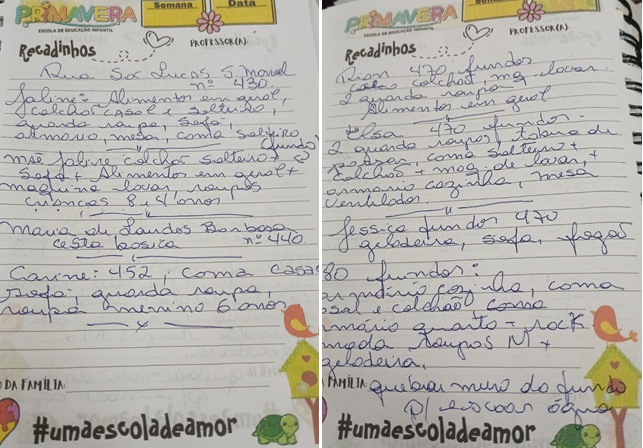 PRIMAVERA
ESCOLA DE EDUCAÇÃO INFANTIL
Semana
Data
Recadinhos
PROFESSOR(A)
Rua São Lucas J.
nº 430
Jaline: Alimentos em geral,
colchor casal e solteiro,
guarda roupa, sofá,
armario, mesa, coma solteiro
(fundo)
mãe Jaline, colchor solteiro +
Sofá + Alimentos em geral +
maquina lavar, roupas
crianças 8 e 4 anos
Maria de Lourdes Barbosa
cesta basica nº 440
Carine: 452, coma casa
sofá, guarda roupa,
roupa menino 6 anos
DA FAMÍLIA:
#umaescoladeamor
PRIMAVERA
ESCOLA DE EDUCAÇÃO INFANTIL
Semana
Recadinhos
PROFESSOR(A)
Rian 470 fundos
colchor, maq lavar
2 guarda roupa
Alimentos em geral
Elsa 470 fundos.
2 guarda roupas, tabua de
passar, coma solteiro +
colchor + maq de lavar, +
armario cozinha, mesa
ventilador.
Jessica fundos 470
geladeira, sofa, fogao
80 fundos:
armário cozinha, coma
sal e colchão coma
mário quarto + rack
moda roupas M +
geladeira,
FAMÍLIA: quebrar muro do fundo
p/ escoar água
#umaescoladeamor